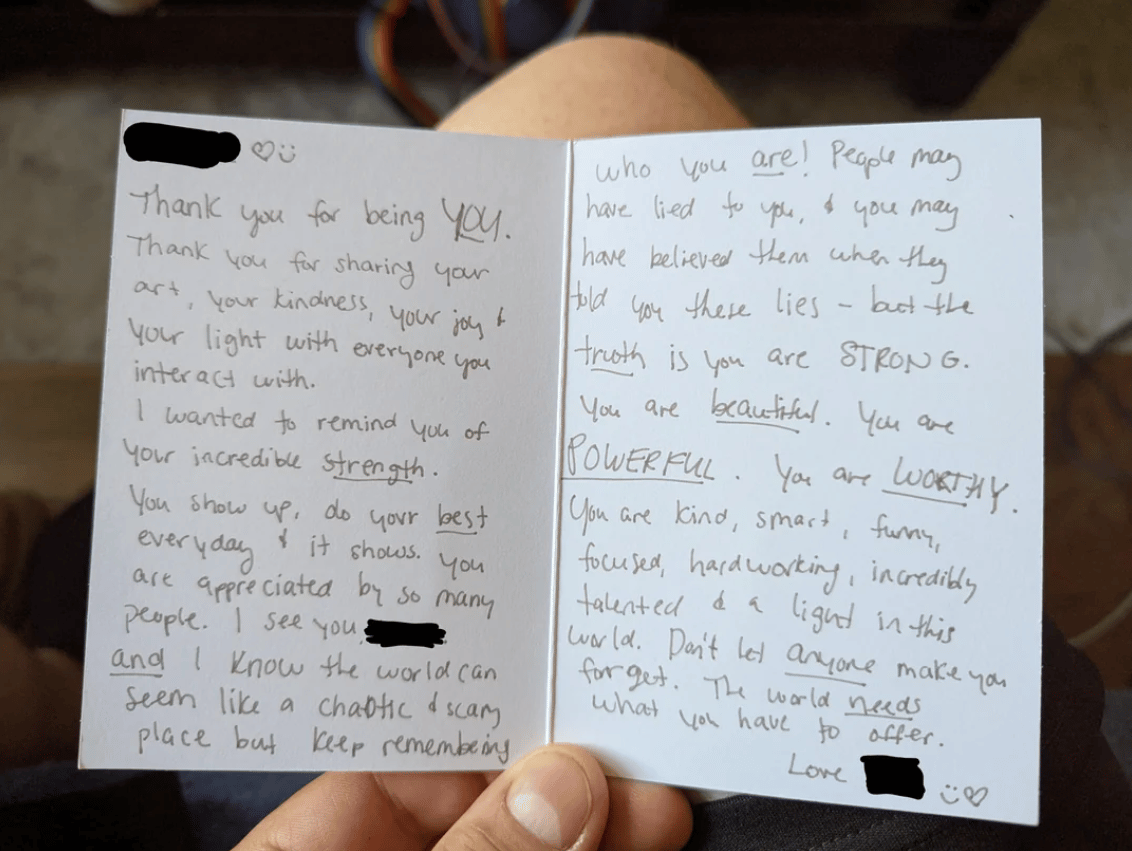 ♡☺
Thank you for being YOU.
Thank you for sharing your
art, your kindness, your joy &
your light with everyone you
interact with.
I wanted to remind you of
your incredible strength.
You show up, do your best
everyday & it shows. You
are appreciated by so many
people. I see you
and I know the world can
seem like a chaotic & scary
place but keep remembeing
who you are! People may
have lied to you, & you may
have believed them when they
told you these lies - but the
truth is you are STRONG.
You are beautiful. You are
POWERFUL. You are WORTHY.
You are kind, smart, funny,
focused, hardworking, incredibly
talented & a light in this
world. Don't let anyone make you
forget. The world needs
what you have to offer.
Love
☺♡